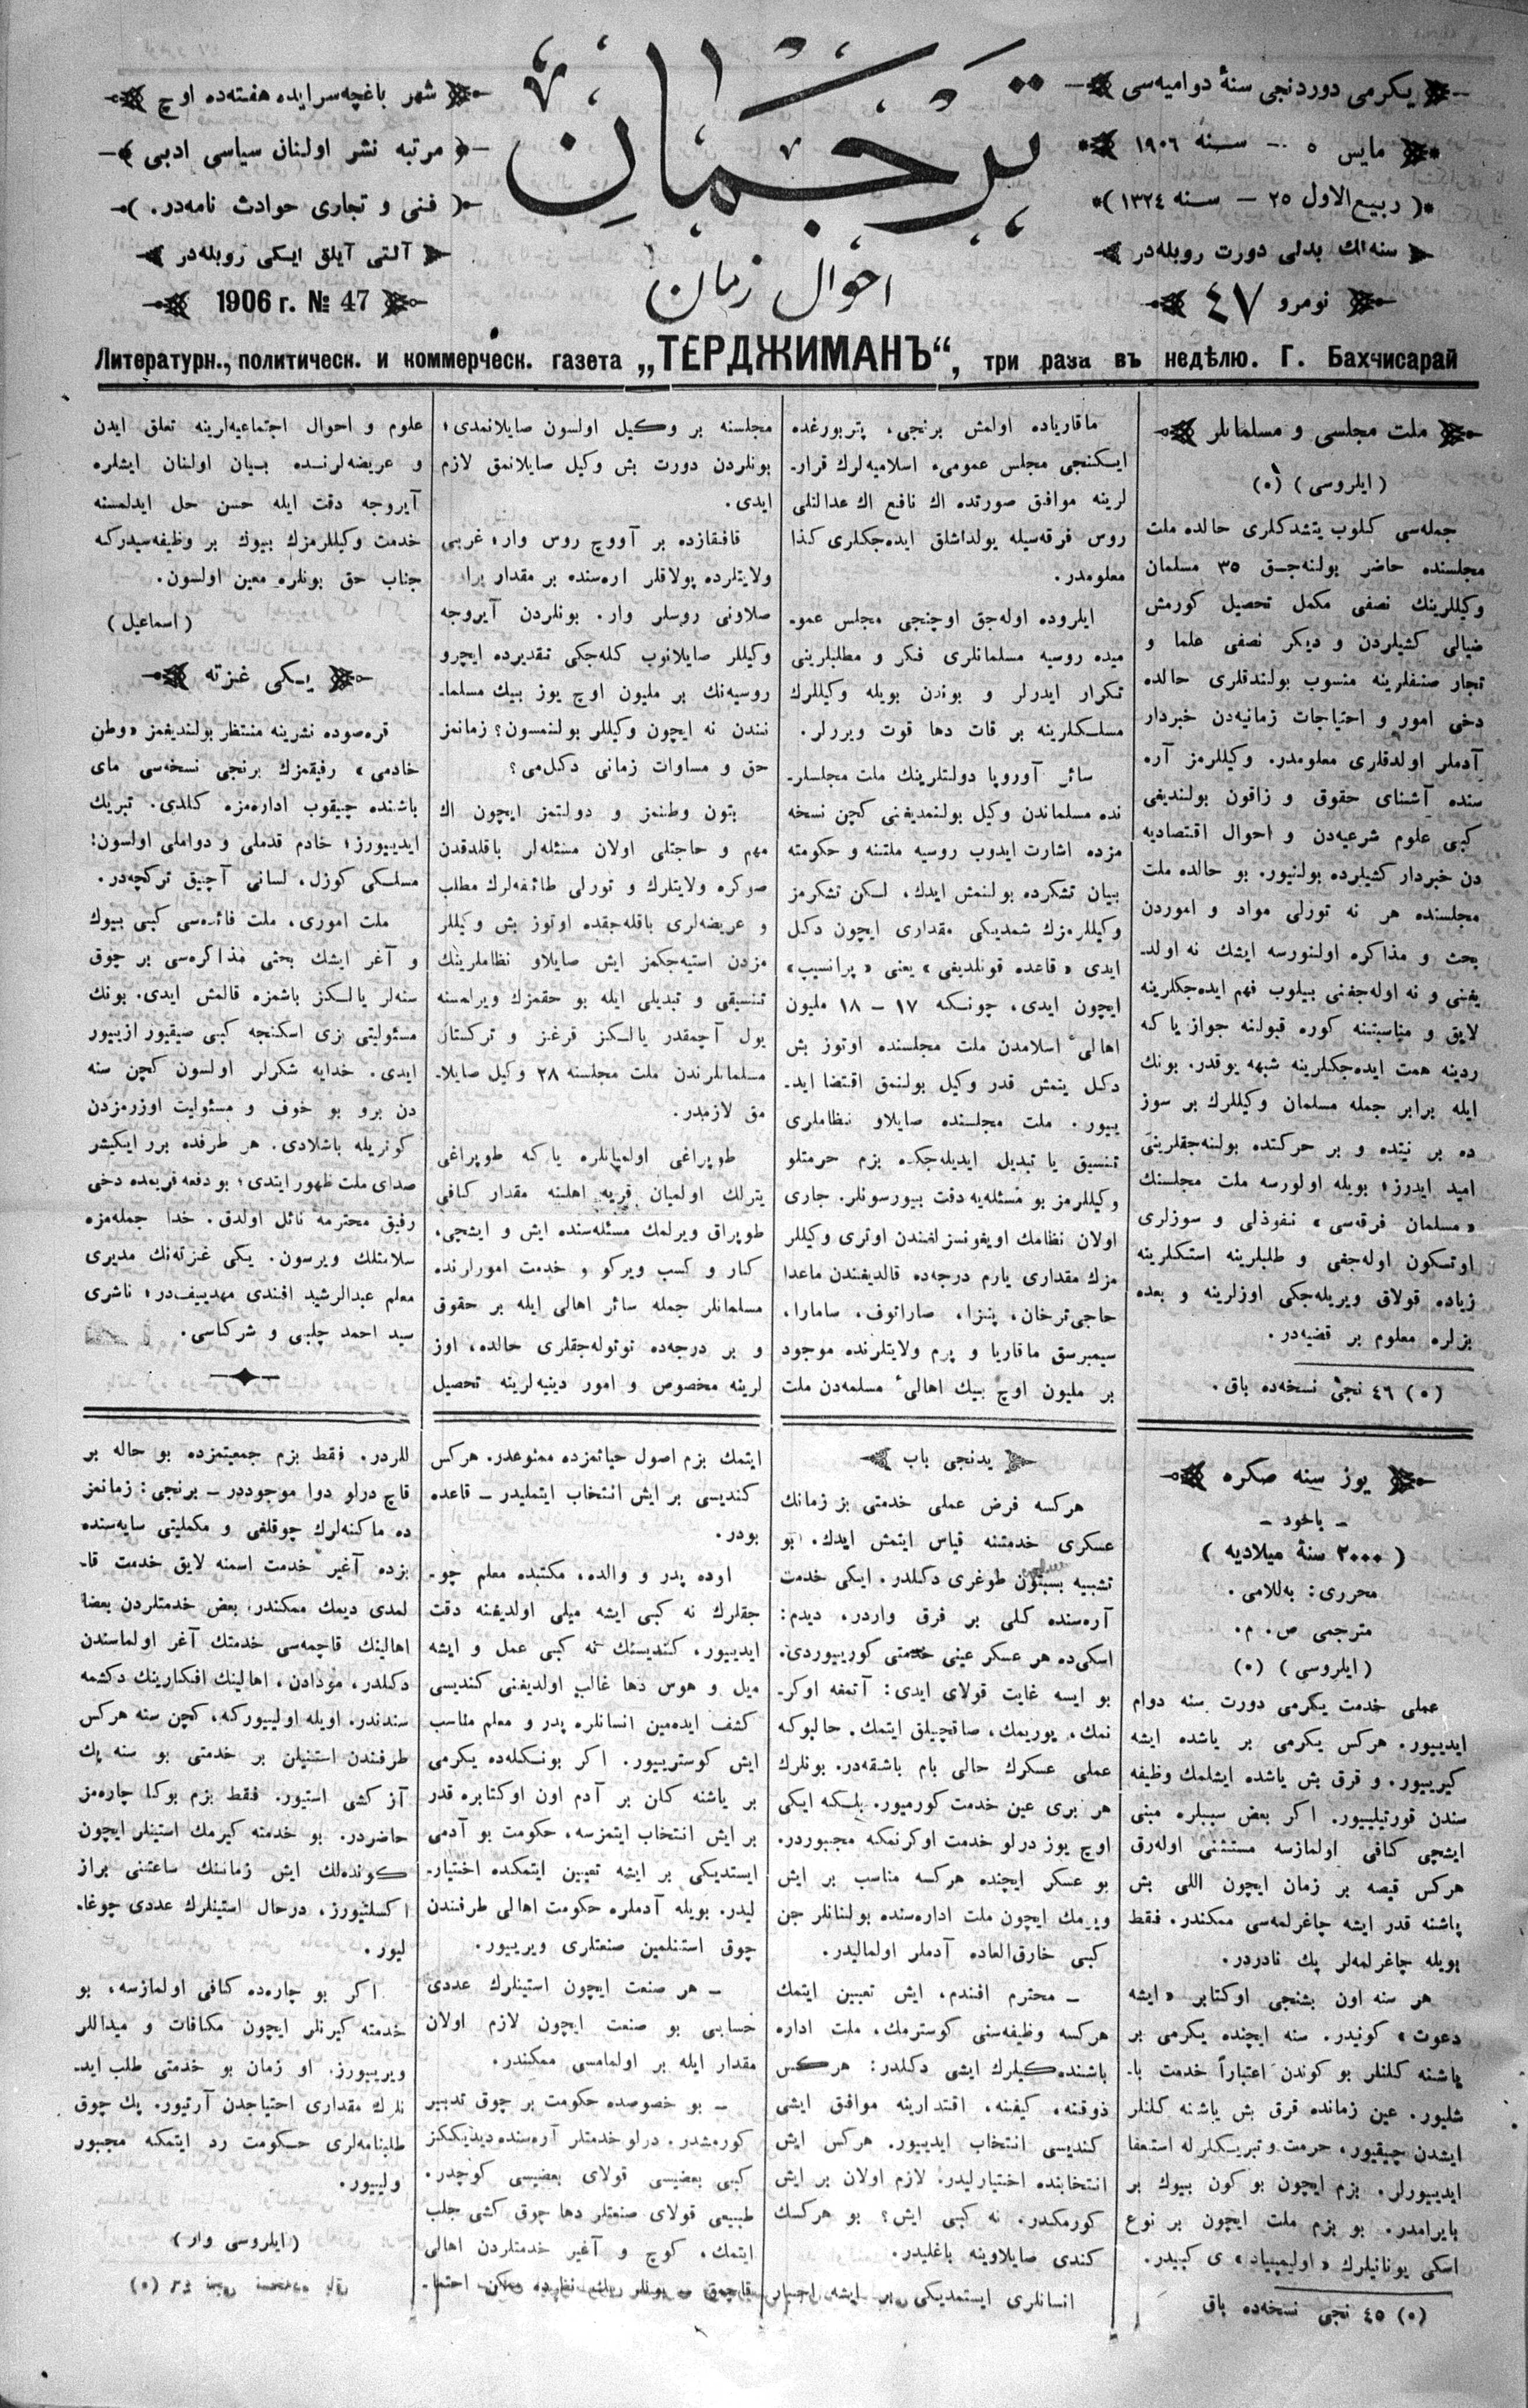 يكرمى دوردنجى سنهٔ دواميه‌سى
مايس ٥ — سنه ١٩٠٦
(ربيع الاول ٢٥ — سنه ١٣٢٤)
سنه‌لك بدلى دورت روبله‌در
نومرو ٤٧
ترجمان
احوال زمان
شهر باغچه‌سرايده هفته‌ده اوچ
مرتبه نشر اولنان سياسى ادبى
(فنى و تجارى حوادث نامه‌در.)
آلتى آيلق ايكى روبله‌در
1906 г. № 47
Литературн., политическ. и коммерческ. газета „ТЕРДЖИМАНЪ“, три раза въ недѣлю. Г. Бахчисарай
ملت مجلسى و مسلمانلر
(ايلروسى) (٥)
جمله‌سى كلوب يتشدكلرى حالده ملت
مجلسنده حاضر بولنه‌جق ٣٥ مسلمان
وكيللرينك نصفى مكمل تحصيل كورمش
ضيالى كشيلردن و ديكر نصفى علما و
تجار صنفلرينه منسوب بولندقلرى حالده
دخى امور و احتياجات زمانيه‌دن خبردار
آدملر اولدقلرى معلومدر. وكيللرمز آره
سنده آشناى حقوق و زاقون بولنديغى
كبى علوم شرعيه‌دن و احوال اقتصاديه
دن خبردار كشيلرده بولنيور. بو حالده ملت
مجلسنده هر نه تورلى مواد و اموردن
بحث و مذاكره اولنورسه ايشك نه اولد-
يغنى و نه اوله‌جغنى بيلوب فهم ايده‌جكلرينه
لايق و مناسبتنه كوره قبولنه جواز ياكه
ردينه همت ايده‌جكلرينه شبهه يوقدر. بونك
ايله برابر جمله مسلمان وكيللرك بر سوز
ده بر نيتده و بر حركتده بولنه‌جقلرينى
اميد ايدرز؛ بويله اولورسه ملت مجلسنك
«مسلمان فرقه‌سى» نفوذلى و سوزلرى
اوتسكون اوله‌جغى و طلبلرينه استكلرينه
زياده قولاق ويريله‌جكى اوزلرينه و بعده
بزلره معلوم بر قضيه‌در.
(٥) ٤٦ نجى نسخه‌ده باق.
ماقارياده اولمش برنجى، پتربورغده
ايكنجى مجلس عمومىء اسلاميه‌لرك قرار-
لرينه موافق صورتده اك نافع اك عدالتلى
روس فرقه‌سيله يولداشلق ايده‌جكلرى كذا
معلومدر.
ايلروده اوله‌جق اوچنجى مجلس عمو-
ميده روسيه مسلمانلرى فكر و مطلبلرينى
تكرار ايدرلر و بوندن بويله وكيللرك
مسلكلرينه بر قات دها قوت ويررلر.
سائر آوروپا دولتلرينك ملت مجلسلر-
نده مسلماندن وكيل بولنمديغنى كچن نسخه
مزده اشارت ايدوب روسيه ملتنه و حكومته
بيان تشكرده بولنمش ايدك، لكن تشكرمز
وكيللرمزك شمديكى مقدارى ايچون دكل
ايدى «قاعده قونلديغى» يعنى «پرانسيب»
ايچون ايدى، چونكه ١٧ — ١٨ مليون
اهالىٴ اسلامدن ملت مجلسنده اوتوز بش
دكل يتمش قدر وكيل بولنمق اقتضا ايد-
ييور. ملت مجلسنده صايلاو نظاملرى
تنسيق يا تبديل ايديله‌جكده بزم حرمتلو
وكيللرمز بو مسئله‌يه دقت بيورسونلر. جارى
اولان نظامك اويغونسزلغندن اوترى وكيللر
مزك مقدارى يارم درجه‌ده قالديغندن ماعدا
حاجى‌ترخان، پنزا، صاراتوف، سامارا،
سيمبرسق ماقاريا و پرم ولايتلرنده موجود
بر مليون اوچ بيك اهالىٴ مسلمه‌دن ملت
مجلسنه بر وكيل اولسون صايلانمدى؛
بونلردن دورت بش وكيل صايلانمق لازم
ايدى.
قافقازده بر آووچ روس وار؛ غربى
ولايتلرده پولاقلر اره‌سنده بر مقدار
صلاونى روسلر وار. بونلردن آيروجه
وكيللر صايلانوب كله‌جكى تقديرده ايچرو
روسيه‌نك بر مليون اوچ يوز بيك مسلما-
نندن نه ايچون وكيللر بولنمسون؟ زمانمز
حق و مساوات زمانى دكل‌مى؟
بتون وطنمز و دولتمز ايچون اك
مهم و حاجتلى اولان مسئله‌لر باقلدقدن
صوكره ولايتلرك و تورلى طائفه‌لرك مطلب
و عريضه‌لرى باقله‌جقده اوتوز بش وكيللر
مزدن استيه‌جكمز ايش صايلاو نظاملرينك
تنسيقى و تبديلى ايله بو حقمزك ويرلمسنه
يول آچمقدر يالكز قرغز و تركستان
مسلمانلرندن ملت مجلسنه ٢٨ وكيل صايلا-
مق لازمدر.
طوپراغى اولميانلره ياكه طوپراغى
يترلك اولميان قريه اهلنه مقدار كافى
طوپراق ويرلمك مسئله‌سنده ايش و ايشچى،
كار و كسب ويركو و خدمت امورلرنده
مسلمانلر جمله سائر اهالى ايله بر حقوق
و بر درجه‌ده توتوله‌جقلرى حالده، اوز
لرينه مخصوص و امور دينيه‌لرينه تحصيل
علوم و احوال اجتماعيه‌لرينه تعلق ايدن
و عريضه‌لرنده بيان اولنان ايشلره
آيروجه دقت ايله حسن حل ايدلمسنه
خدمت وكيللرمزك بيوك بر وظيفه‌سيدركه
جناب حق بونلره معين اولسون.
(اسماعيل)
يكى غزته
قره‌صوده نشرينه منتظر بولنديغمز «وطن
خادمى» رفيقمزك برنجى نسخه‌سى ماى
باشنده چيقوب اداره‌مزه كلدى. تبريك
ايدييورز؛ خادم قدملى و دواملى اولسون؛
مسلكى كوزل، لسانى آچيق تركچه‌در.
ملت امورى، ملت فائده‌سى كبى بيوك
و آغر ايشك بحثى مذاكره‌سى بر چوق
سنه‌لر يالكز باشمزه قالمش ايدى. بونك
مسئوليتى بزى اسكنجه كبى صيقيور ازييور
ايدى. خدايه شكرلر اولسون كچن سنه
دن برو بو خوف و مسئوليت اوزرمزدن
كوتريله باشلادى. هر طرفده برر ايكيشر
صداى ملت ظهور ايتدى؛ بو دفعه قريمده دخى
رفيق محترمه نائل اولدق. خدا جمله‌مزه
سلامتلك ويرسون. يكى غزته‌نك مديرى
معلم عبدالرشيد افندى مهدييف‌در؛ ناشرى
سيد احمد چلبى و شركاسى.
يوز سنه صكره
— ياخود —
(٢٠٠٠ سنهٔ ميلاديه)
محررى: به‌للامى.
مترجمى ص. م.
(ايلروسى) (٥)
عملى خدمت يكرمى دورت سنه دوام
ايدييور. هركس يكرمى بر ياشده ايشه
كيرييور. و قرق بش ياشده ايشلمك وظيفه
سندن قورتيلييور. اكر بعض سببلره مبنى
ايشچى كافى اولمازسه مستثنى اوله‌رق
هركس قيصه بر زمان ايچون اللى بش
ياشنه قدر ايشه چاغرلمه‌سى ممكندر. فقط
بويله چاغرلمه‌لر پك نادردر.
هر سنه اون بشنجى اوكتابر «ايشه
دعوت» كونيدر. سنه ايچنده يكرمى بر
ياشنه كلنلر بو كوندن اعتباراً خدمت با-
شليور. عين زمانده قرق بش ياشنه كلنلر
ايشدن چيقيور، حرمت و تبريكلرله استعفا
ايدييورلر. بزم ايچون بو كون بيوك بر
بايرامدر. بو بزم ملت ايچون بر نوع
اسكى يونانيلرك «اوليمپياد» ى كبيدر.
(٥) ٤٥ نجى نسخه‌ده باق
يدنجى باب
هركسه فرض عملى خدمتى بز زمانك
عسكرى خدمتنه قياس ايتمش ايدك. بو
تشبيه بسبتون طوغرى دكلدر. ايكى خدمت
آره‌سنده كلى بر فرق واردر، ديدم:
اسكى‌ده هر عسكر عينى خدمتى كورييوردى.
بو ايسه غايت قولاى ايدى: آتمغه اوكر-
نمك، يوريمك، صاقچيلق ايتمك. حالبوكه
عملى عسكرك حالى بام باشقه‌در. بونلرك
هر برى عين خدمت كورميور. بلكه ايكى
اوچ يوز درلو خدمت اوكرنمكه مجبوردر.
بو عسكر ايچنده هركسه مناسب بر ايش
ويرمك ايچون ملت اداره‌سنده بولنانلر جن
كبى خارق‌العاده آدملر اولماليدر.
— محترم افندم، ايش تعيين ايتمك
هركسه وظيفه‌سنى كوسترمك، ملت اداره
باشنده‌كيلرك ايشى دكلدر: هركس
ذوقنه، كيفنه، اقتدارينه موافق ايشى
كنديسى انتخاب ايدييور. هركس ايش
انتخابنده اختيارليدر. لازم اولان بر ايش
كورمكدر. نه كبى ايش؟ بو هركسك
كندى صايلاوينه باغليدر.
انسانلرى ايستمديكى بر ايشه اجبار
ايتمك بزم اصول حياتمزده ممنوعدر. هركس
كنديسى بر ايش انتخاب ايتمليدر — قاعده
بودر.
اوده پدر و والده، مكتبده معلم چو-
جقلرك نه كبى ايشه ميلى اولديغنه دقت
ايدييور، كنديسنك نه كبى عمل و ايشه
ميل و هوس دها غالب اولديغنى كنديسى
كشف ايده‌مين انسانلره پدر و معلم مناسب
ايش كوسترييور. اكر بونكله‌ده يكرمى
بر ياشنه كلن بر آدم اون اوكتابره قدر
بر ايش انتخاب ايتمزسه، حكومت بو آدمى
ايستديكى بر ايشه تعيين ايتمكده اختيار-
ليدر. بويله آدملره حكومت اهالى طرفندن
چوق استنلمين صنعتلرى ويرييور.
— هر صنعت ايچون استينلرك عددى
حسابى بو صنعت ايچون لازم اولان
مقدار ايله بر اولمامسى ممكندر.
— بو خصوصده حكومت بر چوق تدبير
كورمشدر. درلو خدمتلر آره‌سنده ديديككز
كبى بعضيسى قولاى بعضيسى كوچدر.
طبيعى قولاى صنعتلر دها چوق كشى جلب
ايتمك، كوچ و آغير خدمتلردن اهالى
للردر. فقط بزم جمعيتمزده بو حاله بر
قاچ درلو دوا موجوددر — برنجى: زمانمز
ده ماكنه‌لرك چوقلغى و مكمليتى سايه‌سنده
بزده آغير خدمت اسمنه لايق خدمت قا-
لمدى ديمك ممكندر، بعض خدمتلردن بعضا
اهالينك قاچمه‌سى خدمتك آغر اولماسندن
دكلدر، مودادن، اهالينك افكارينك دكشمه
سندندر. اويله اولييوركه، كچن سنه هركس
طرفندن استنيلن بر خدمتى بو سنه پك
آز كشى استيور. فقط بزم بوكا چاره‌مز
حاضردر. بو خدمته كيرمك استينلر ايچون
كونده‌لك ايش زماننك ساعتنى براز
اكسلتيورز، درحال استينلرك عددى چوغا-
ليور.
اكر بو چاره‌ده كافى اولمازسه، بو
خدمته كيرنلر ايچون مكافات و ميداللر
ويرييورز. او زمان بو خدمتى طلب ايد-
نلرك مقدارى احتياجدن آرتيور. پك چوق
طلبنامه‌لرى حكومت رد ايتمكه مجبور
ولييور.
(ايلروسى وار)